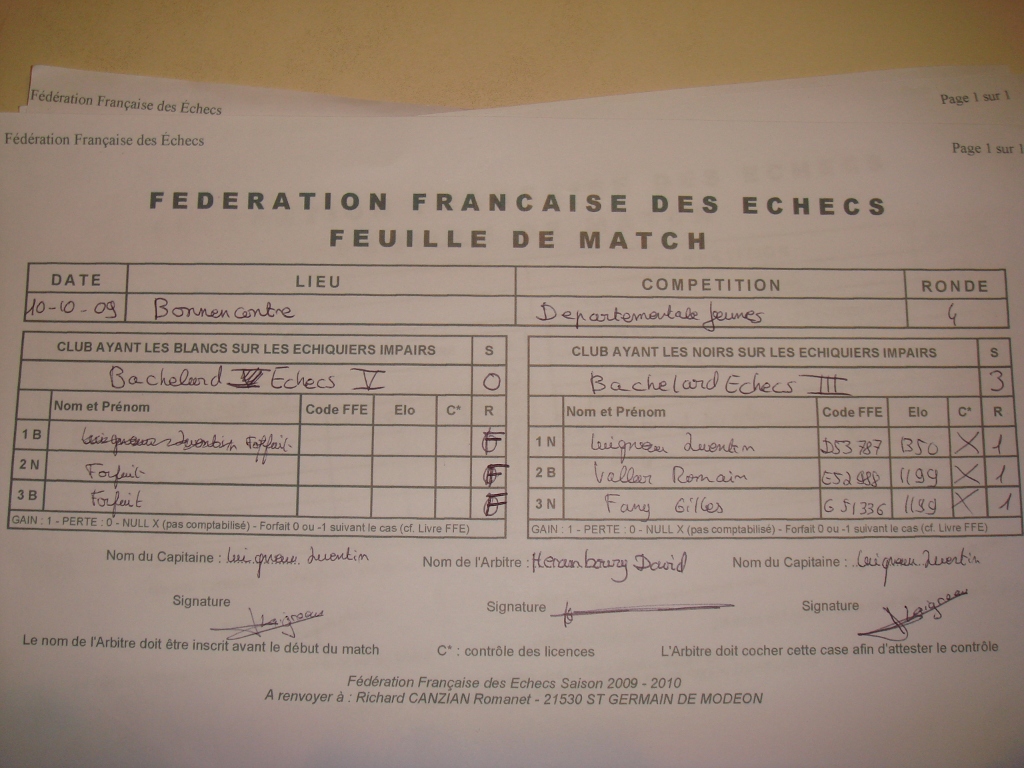 Fédération Française des Échecs Page 1 sur 1
Fédération Française des Échecs Page 1 sur 1
FEDERATION FRANCAISE DES ECHECS
FEUILLE DE MATCH
DATE LIEU COMPETITION RONDE
10-10-09 Bonnencontre Departementale Jeunes 4
CLUB AYANT LES BLANCS SUR LES ECHIQUIERS IMPAIRS S CLUB AYANT LES NOIRS SUR LES ECHIQUIERS IMPAIRS S
Bachelard Echecs V 0 Bachelard Echecs III 3
Nom et Prénom Code FFE Elo C* R Nom et Prénom Code FFE Elo C* R
1 B Forfait F 1 N Quentin D53787 1350 X 1
2 N Forfait F 2 B Romain E52988 1199 X 1
3 B Forfait F 3 N Fany Gilles G51336 1199 X 1
GAIN : 1 - PERTE : 0 - NULL X (pas comptabilisé) - Forfait 0 ou -1 suivant le cas (cf. Livre FFE) GAIN : 1 - PERTE : 0 - NULL X (pas comptabilisé) - Forfait 0 ou -1 suivant le cas (cf. Livre FFE)
Nom du Capitaine : Quentin Nom de l'Arbitre : Herambourg David Nom du Capitaine : Quentin
Signature Signature Signature
Le nom de l'Arbitre doit être inscrit avant le début du match C* : contrôle des licences L'Arbitre doit cocher cette case afin d'attester le contrôle
Fédération Française des Echecs Saison 2009 - 2010
A renvoyer à : Richard CANZIAN Romanet - 21530 ST GERMAIN DE MODEON